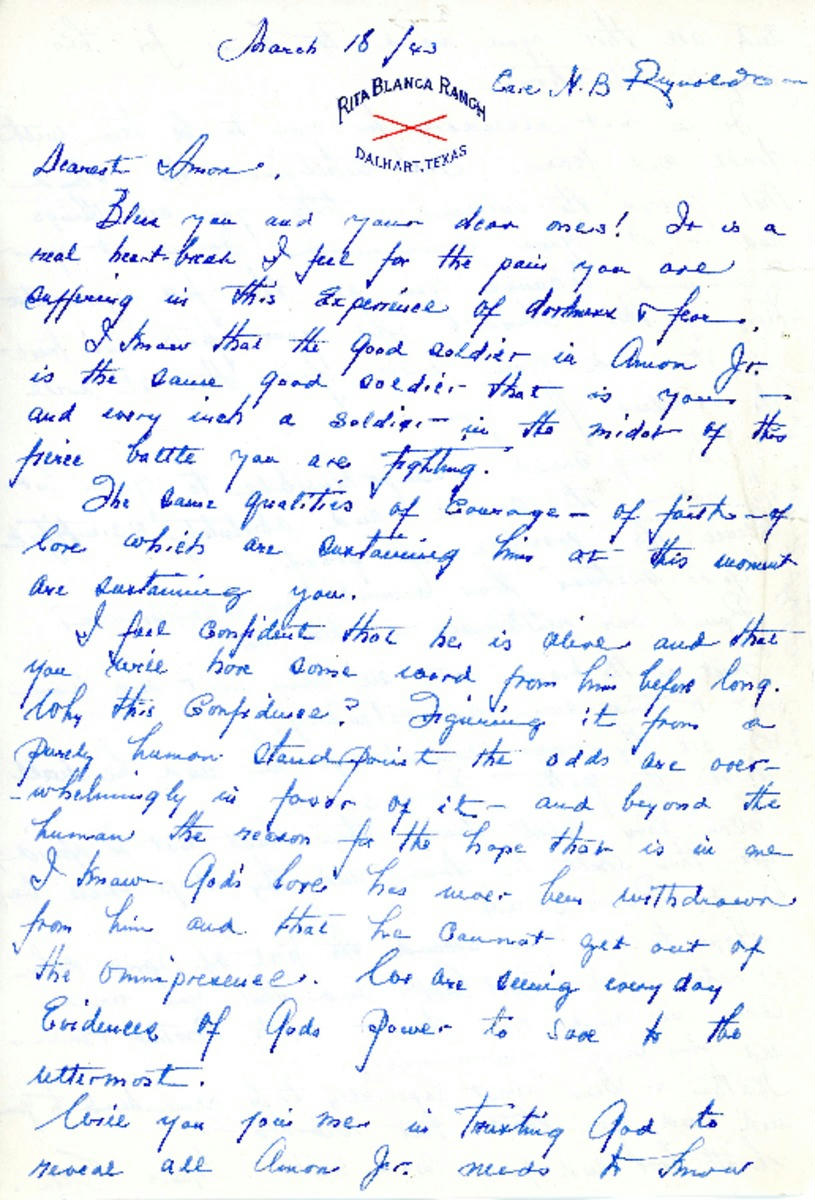 March 18/43
Care N.B Reynolds
RITA BLANCA RANCH
DALHART, TEXAS
Dearest Amon,
Bless you and your dear ones! It is a
real heart-break I feel for the pain you are
suffering in this Experience of darkness & fear.
I know that the good soldier in Amon Jr.
is the same good soldier that is you —
and every inch a soldier in the midst of this
fierce battle you are fighting.
The same qualities of courage — of faith — of
love which are sustaining him at this moment
are sustaining you.
I feel confident that he is alive and that
you will have some word from him before long.
Why this Confidence? Figuring it from a
purely human standpoint the odds are over-
-whelmingly in favor of it — and beyond the
human the reason for the hope that is in me
I know God's love has never been withdrawn
from him and that he cannot get out of
the omnipresence. We are seeing every day
Evidences of Gods power to save to the
uttermost.
Will you join me in trusting God to
reveal all Amon Jr. needs to know